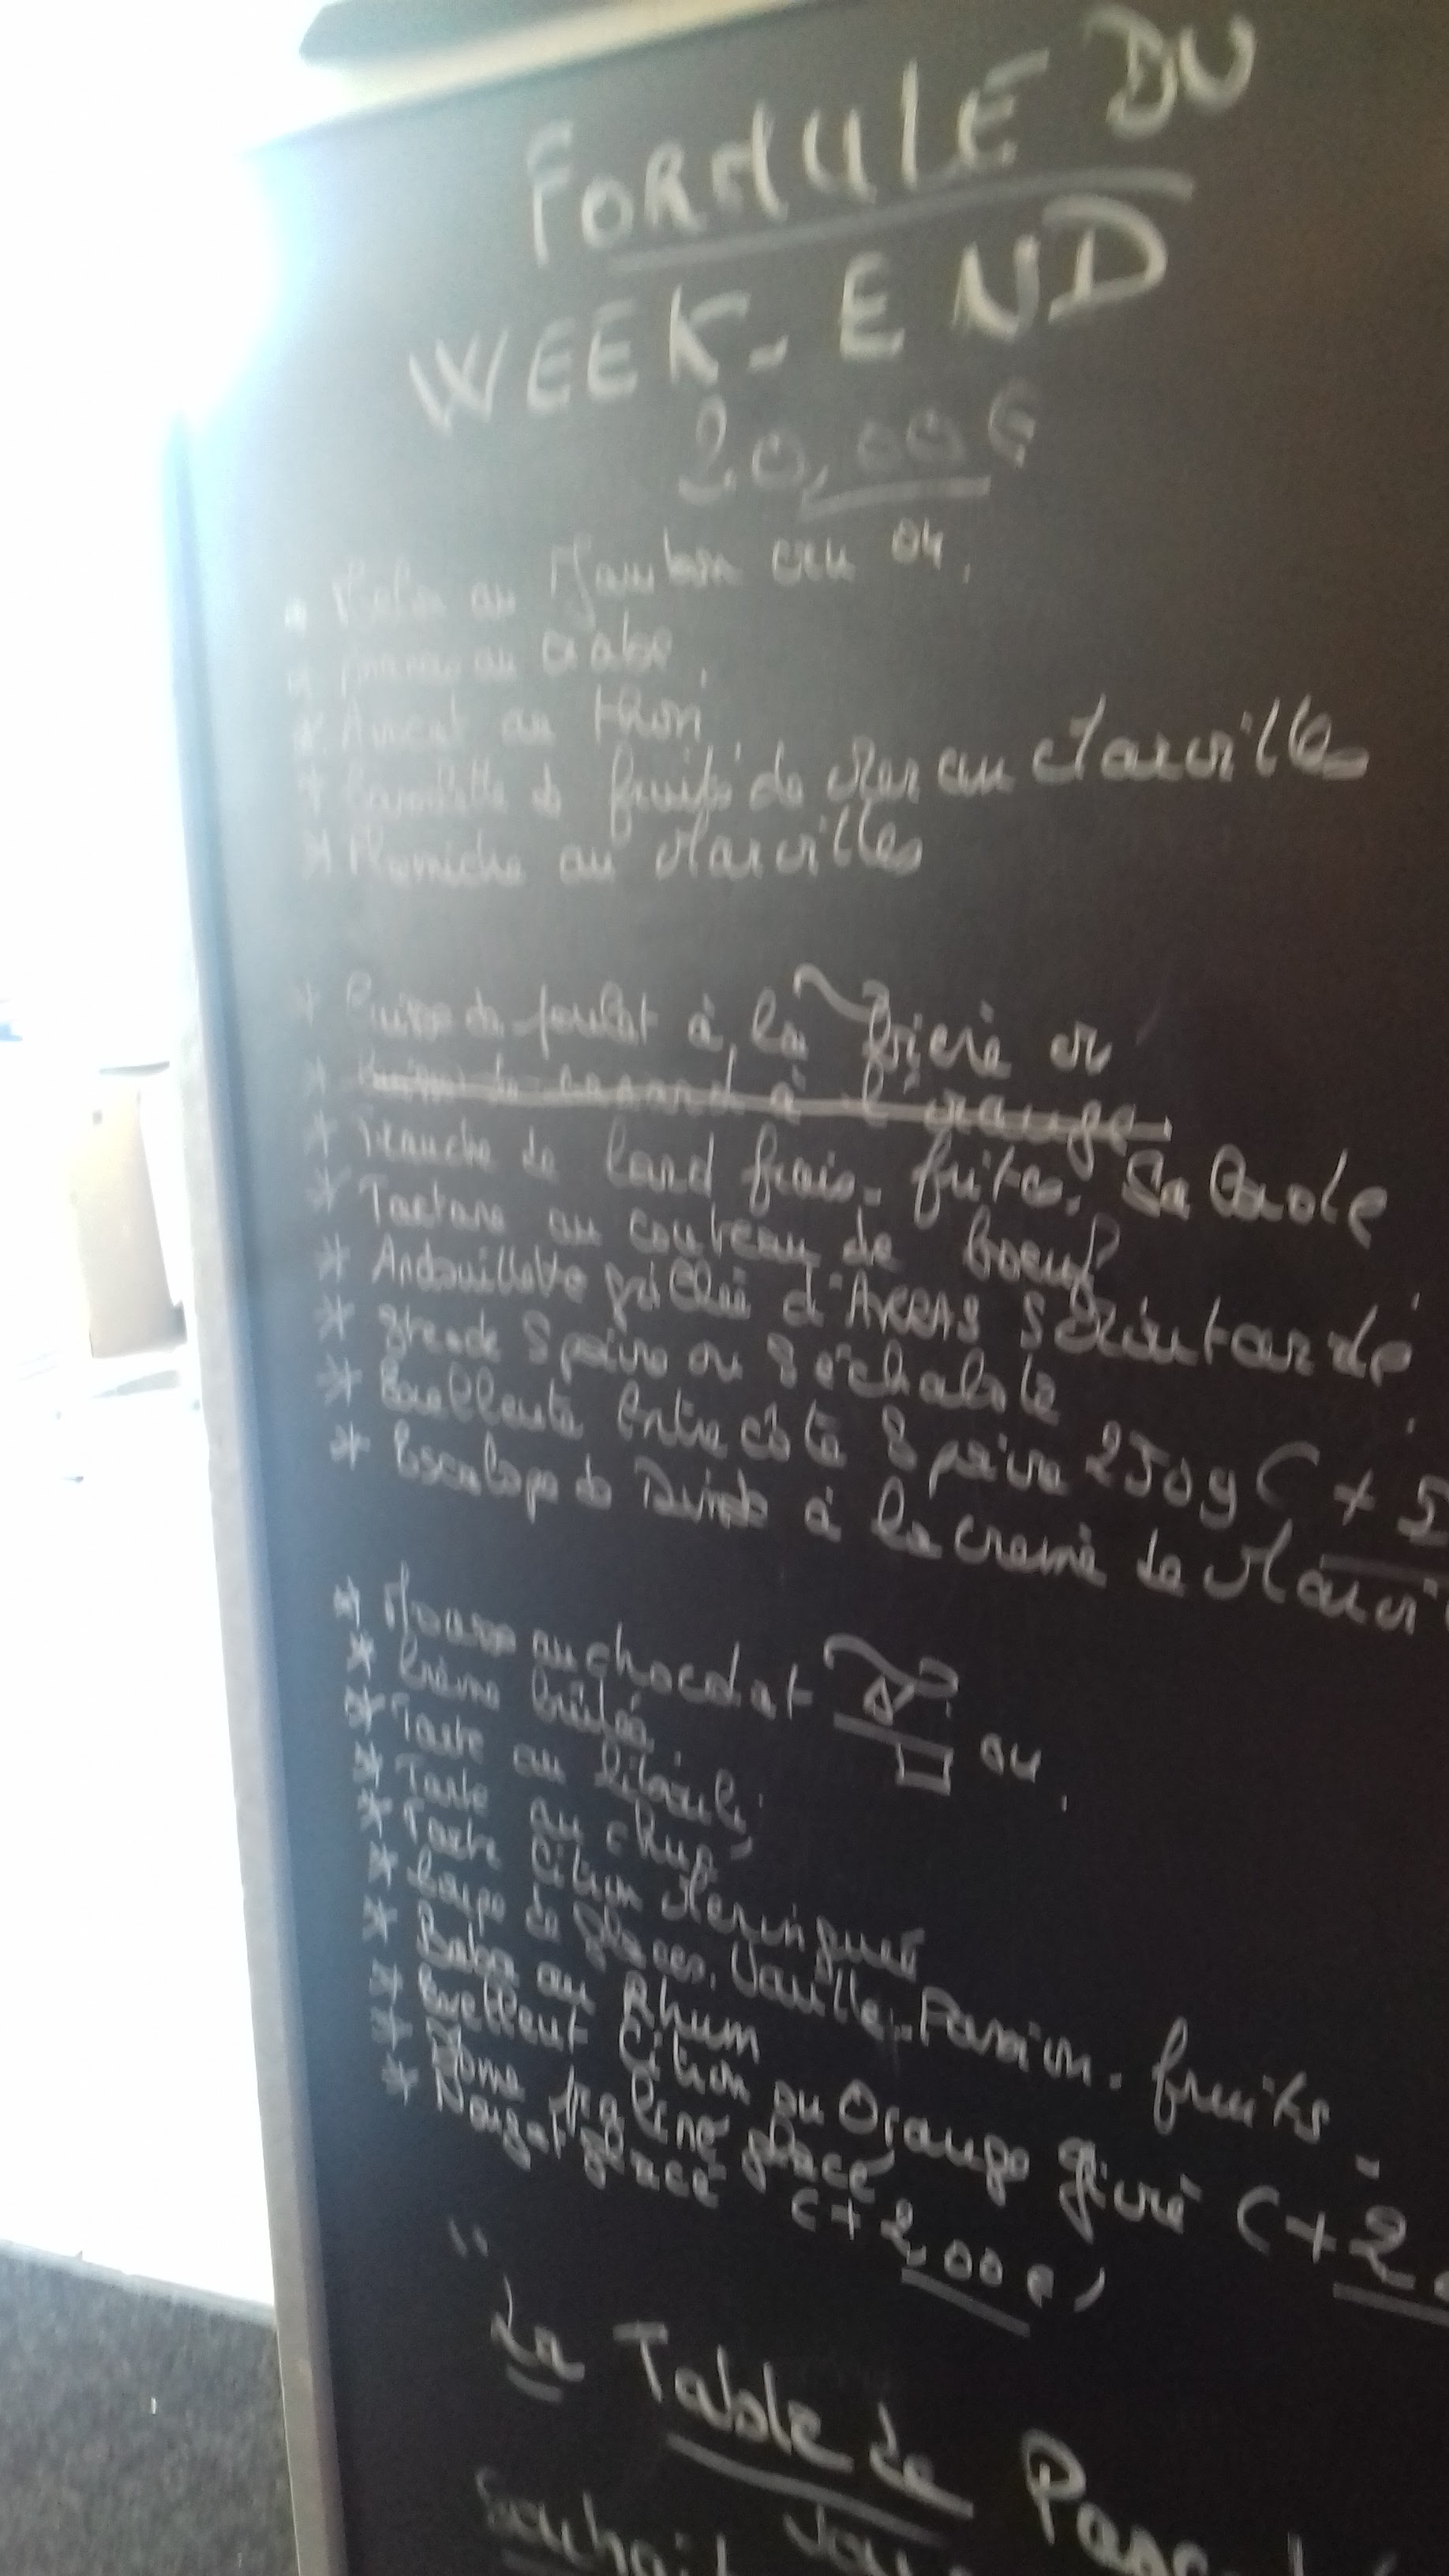 FORMULE DU
WEEK-END
20,00€
* Melon au Jambon cru ou
* au crabe
* Avocat au thon
* Cassolette de fruits de Mer au Maroilles
* au Maroilles
* Cuisse de poulet à la bière ou
* canard à l'orange
* Tranche de lard frais. frites. Salade
* Tartare au couteau de boeuf
* Andouillette grillée d'ARRAS S Moutarde
* Steack S poivre ou S échalote
* Excellente Entrecôte S poivre 250g (+ 5
* Escalope de Dinde à la crème de Maroi
* Mousse au chocolat ou
* Crème brûlée
* Tarte au libouli
* Tarte au chuq
* Tarte Citron Meringuée
* Coupe de glaces. Vanille. Passion. fruits
* Baba au Rhum
* Excellent Citron ou Orange givré (+2
* Dôme praliné glacé
* Nougat glacé (+2,00€)
"La Table de Pasc
Souhait